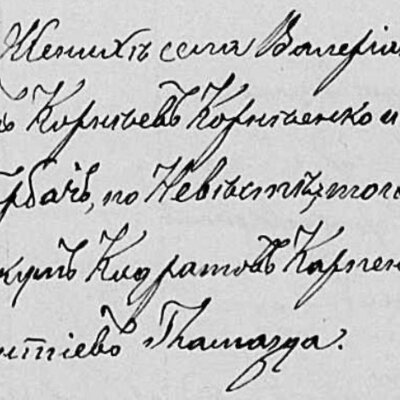 Женихѣ села Валеріа
ъ Корнѣевъ Корнѣенко и
рбачъ, по Невѣстѣ, того
кумъ Кодратовъ Карпен
нтіевъ Гамазда.